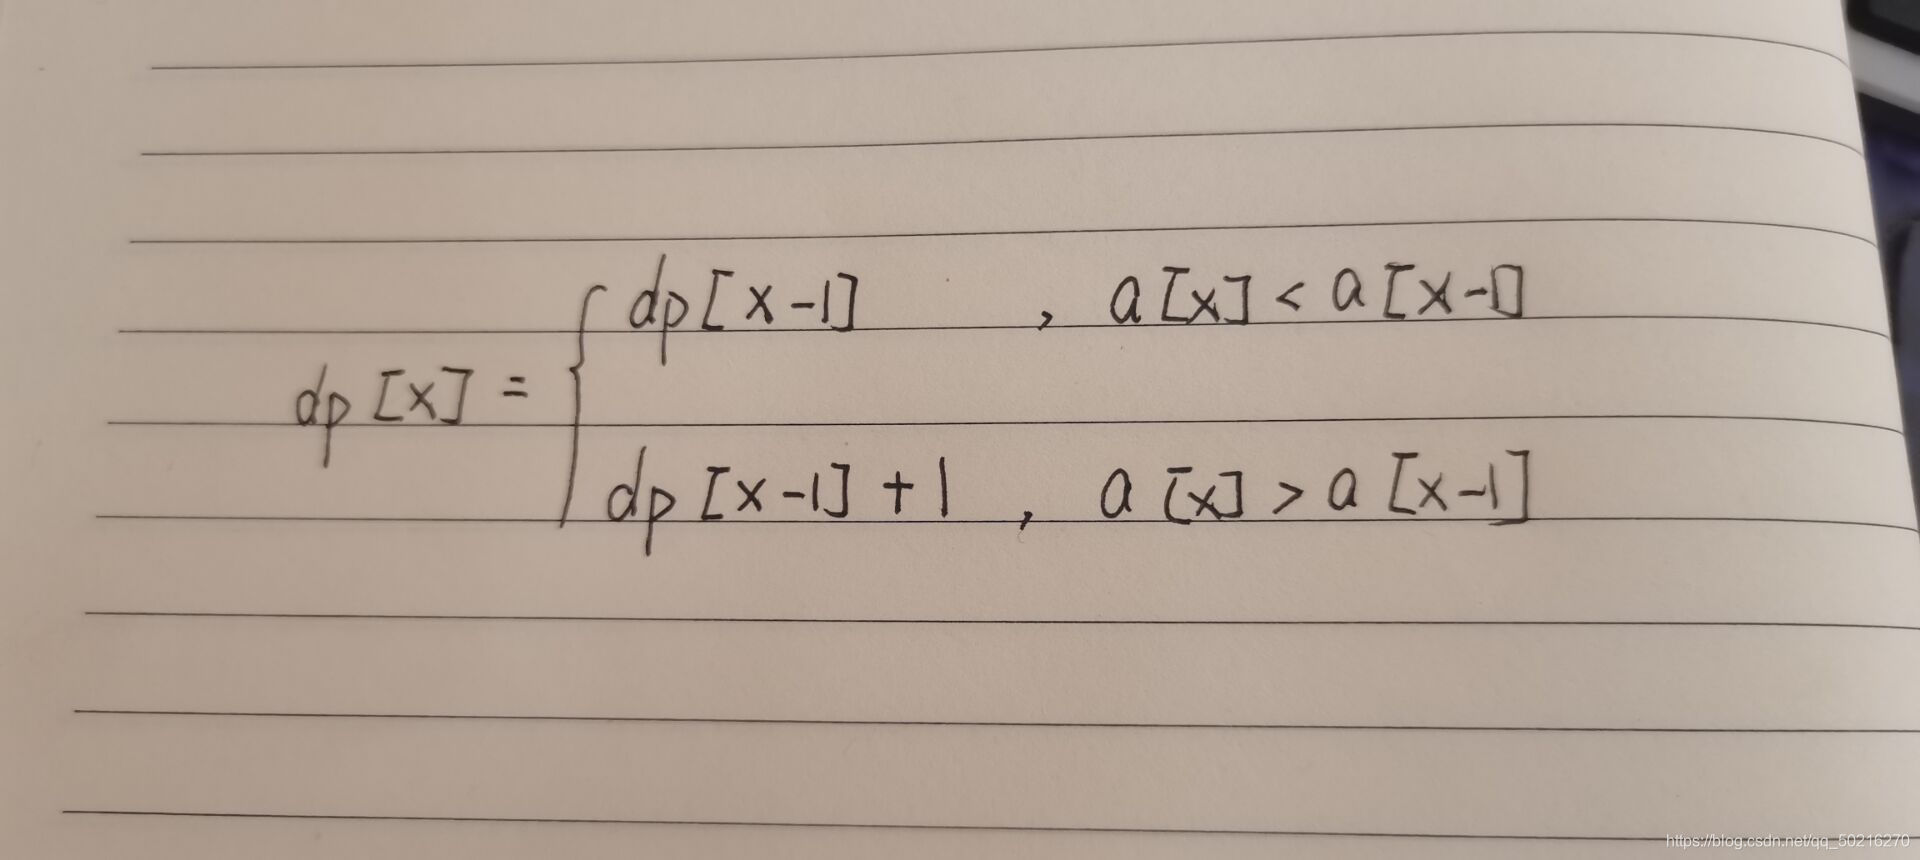 dp[x-1] , a[x] < a[x-1]
dp[x] = {
dp[x-1]+1 , a[x] > a[x-1]
https://blog.csdn.net/qq_50216270